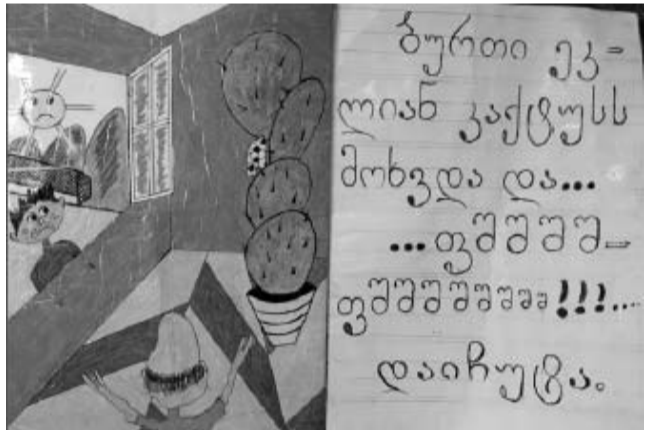 ბურთი ეკ=
ლიან კაქტუსს
მოხვდა და...
...ფშშშშ=
ფშშშშშშშშ!!!....
დაიჩუტა.